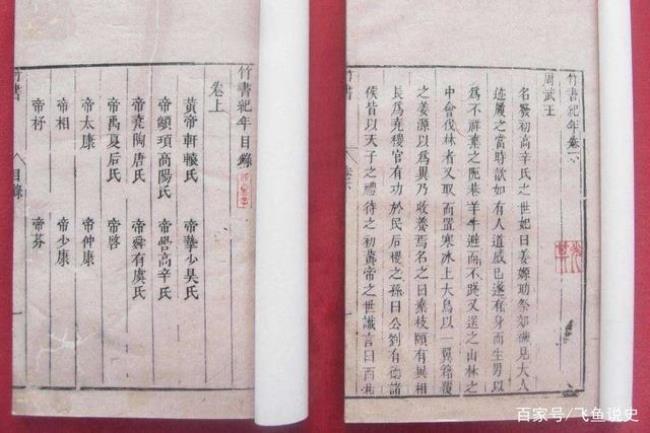 竹書紀年目錄
卷上
黃帝軒轅氏 帝摯少昊氏
帝顓頊高陽氏 帝嚳高辛氏
帝堯陶唐氏 帝舜有虞氏
帝禹夏后氏 帝啓
帝太康 帝仲康
帝相 帝少康
帝杼 帝芬
竹書 目錄
竹書紀年卷
周武王
名發初高辛氏之世妃曰姜嫄助祭郊禖見大人
迹履之當時歆如有人道感已遂有身而生男以
為不祥棄之阨巷羊牛避而不踐又送之山林之
中會伐林者又取而置寒冰上大鳥以一翼籍覆
之姜源以為異乃收養焉名之曰棄枝頤有異相
長為堯稷官有功於民后稷之孫曰公劉有德諸
侯皆以天子之禮待之初黃帝之世讖言曰西北
竹書
百家号/飞鱼说史